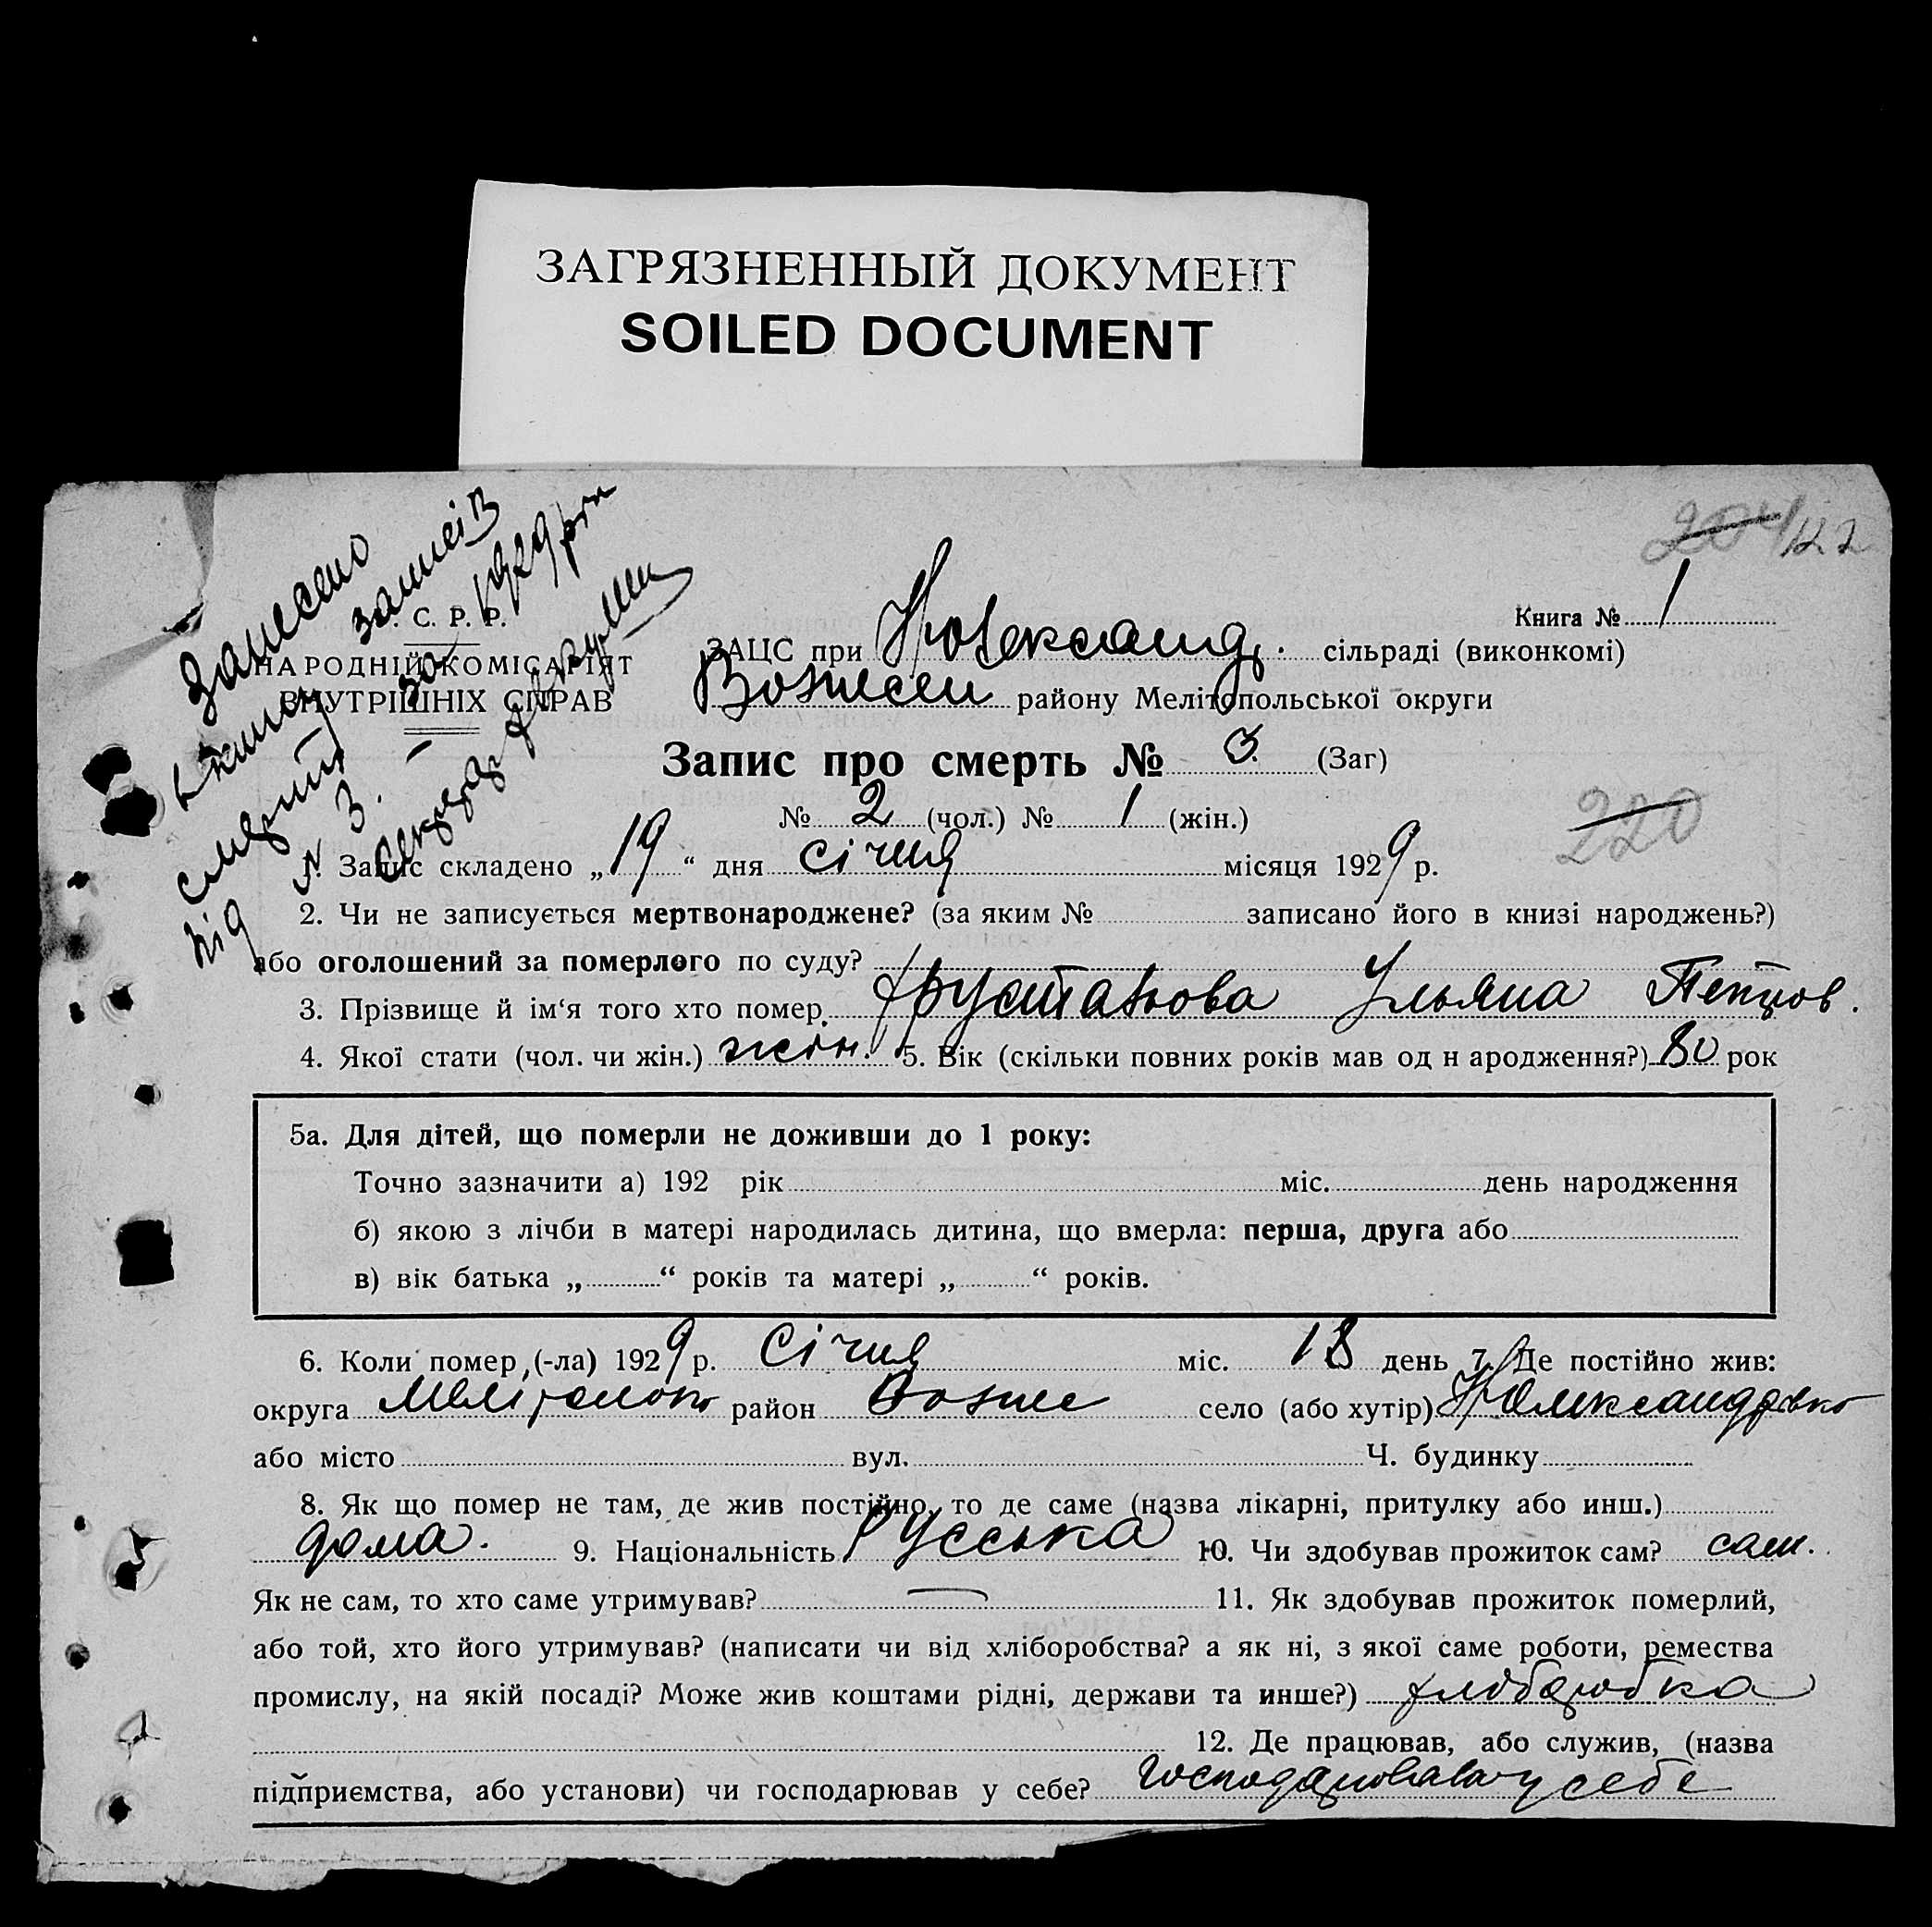 ЗАГРЯЗНЕННЫЙ ДОКУМЕНТ
SOILED DOCUMENT
204/122
Занесено
в книгу записів
смерти за 1929 рік
під № 3. —
Секретар
С. Р. Р.
НАРОДНІЙ КОМІСАРІЯТ
ВНУТРІШНІХ СПРАВ
Книга № 1
ЗАЦС при Н Олександр. сільраді (виконкомі)
Вознесен району Мелітопольської округи
Запис про смерть № 3 (Заг)
№ 2 (чол.) № 1 (жін.)
220
1. Запис складено „19“ дня січня місяця 1929 р.
2. Чи не записується мертвонароджене? (за яким № записано його в книзі народжень?)
або оголошений за померлого по суду?
3. Прізвище й ім‘я того хто помер. Ульяна Петров.
4. Якої стати (чол. чи жін.) жін. 5. Вік (скільки повних років мав од н ародження?) 80 рок
5а. Для дітей, що померли не доживши до 1 року:
Точно зазначити а) 192 рік міс. день народження
б) якою з лічби в матері народилась дитина, що вмерла: перша, друга або
в) вік батька „ “ років та матері „ “ років.
6. Коли помер,(-ла) 1929 р. Січня міс. 18 день 7. Де постійно жив:
округа Мелітополь район Возне село (або хутір) Н Олександровко
або місто вул. Ч. будинку
8. Як що помер не там, де жив постійно, то де саме (назва лікарні, притулку або инш.)
дома. 9. Національність Русська 10. Чи здобував прожиток сам? сам.
Як не сам, то хто саме утримував? — 11. Як здобував прожиток померлий,
або той, хто його утримував? (написати чи від хліборобства? а як ні, з якої саме роботи, ремества
промислу, на якій посаді? Може жив коштами рідні, держави та инше?) хліборобка
12. Де працював, або служив, (назва
підприємства, або установи) чи господарював у себе? господарювала у себе